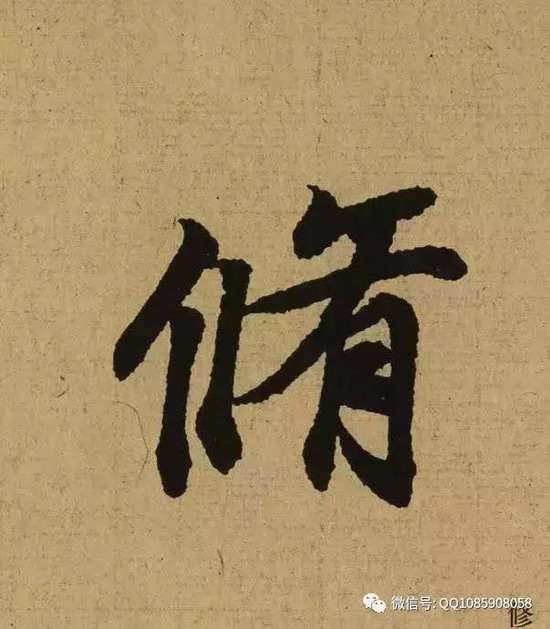 脩
微信号: QQ1085908058
修